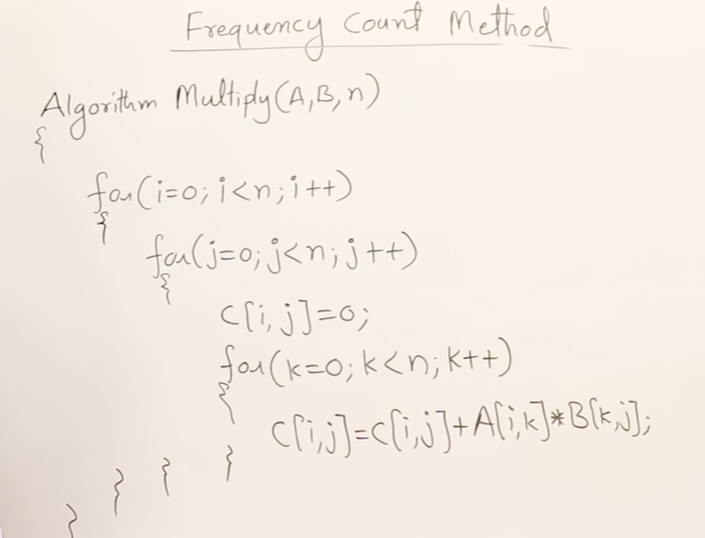 Frequency Count Method
Algorithm Multiply(A,B,n)
{
for(i=0; i<n; i++)
{
for(j=0; j<n; j++)
{
C[i,j]=0;
for(k=0; k<n; k++)
{
C[i,j]=C[i,j]+A[i,k]*B[k,j];
}
}
}
}